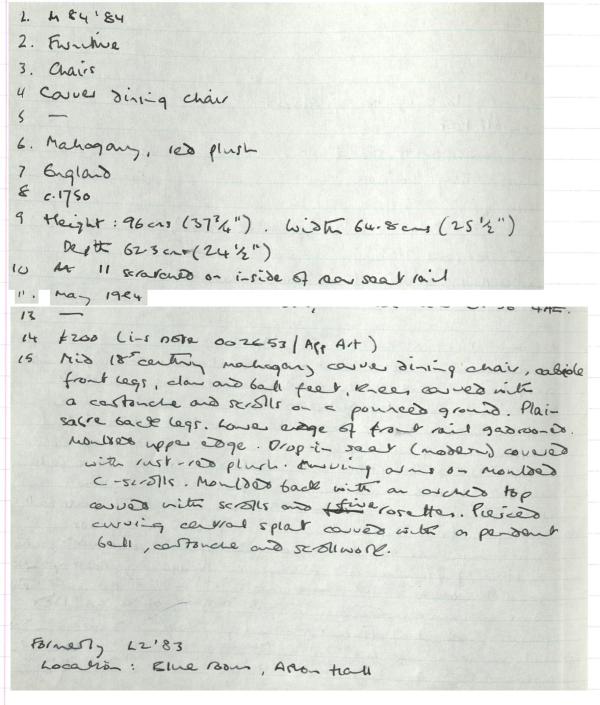 1. M 84'84
2. Furniture
3. Chairs
4 Carver dining chair
5 —
6. Mahogany, red plush
7 England
8 c.1750
9 Height : 96 cms (37 3/4"). Width 64.8 cms (25 1/2")
Depth 62.3 cms (24 1/2")
10 II scratched on inside of rear seat rail
11. May 1984
13 —
14 £200 (ins note 002653/ App Art)
15 Mid 18th century mahogany carver dining chair, cabriole
front legs, claw and ball feet, knees carved with
a cartouche and scrolls on a pounced ground. Plain
sabre back legs. Lower edge of front rail gadrooned.
Moulded upper edge. Drop-in seat (modern) covered
with rust-red plush. Curving arms on moulded
C-scrolls. Moulded back with an arched top
carved with scrolls and five rosettes. Pierced
curving central splat carved with a pendent
ball, cartouche and scrollwork.
Formerly L2'83
Location : Blue Room, Aston Hall